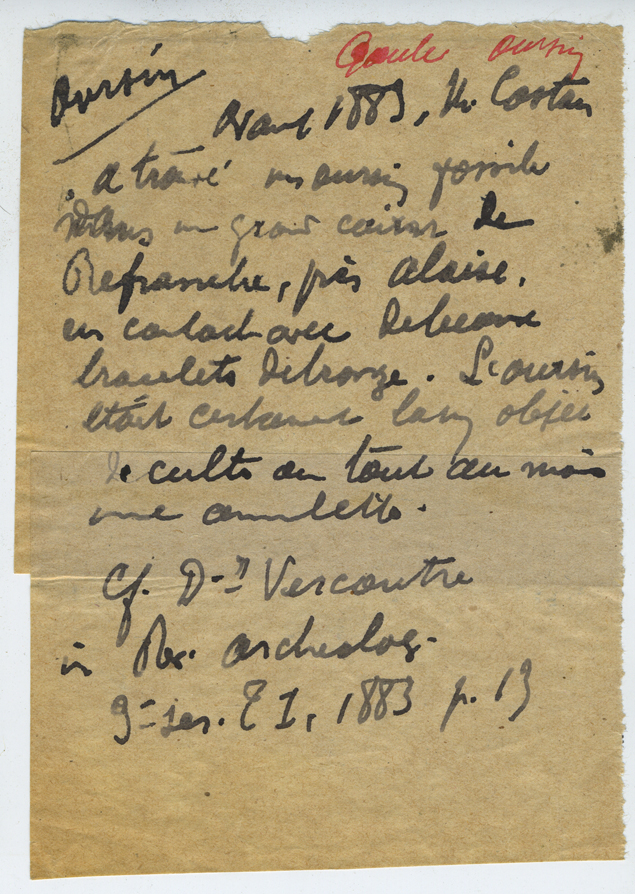 Gaule oursin
Oursin
Avant 1883, M. Castan
a trouvé un oursin fossile
dans un grand cairn de
Refranche, près Alaise,
en contact avec de beaux
bracelets de bronze. L'oursin
était certainement un objet
de culte ou tout au mois
une amulette.
Cf. Dr Vercoutre
in Rev. archeolog.
3e ser. T I, 1883 p. 13